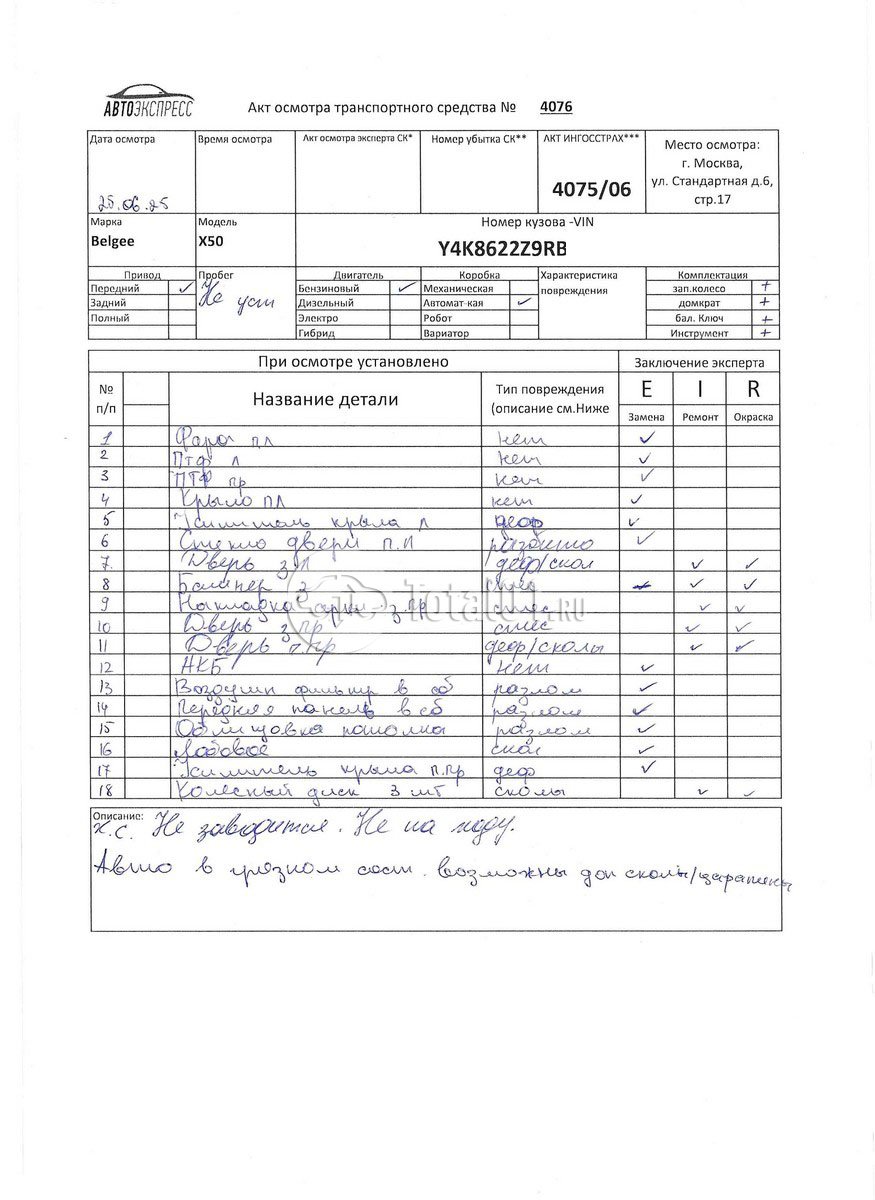 АВТОЭКСПРЕСС
Акт осмотра транспортного средства № 4076
Дата осмотра Время осмотра Акт осмотра эксперта СК* Номер убытка СК** АКТ ИНГОССТРАХ*** Место осмотра:
г. Москва,
ул. Стандартная д.6,
стр.17
25.06.25 4075/06
Марка Модель Номер кузова -VIN
Belgee X50 Y4K8622Z9RB
Привод Пробег Двигатель Коробка Характеристика повреждения Комплектация
Передний ✓ Не уст Бензиновый ✓ Механическая зап.колесо +
Задний Дизельный Автомат-кая ✓ домкрат +
Полный Электро Робот бал. Ключ +
Гибрид Вариатор Инструмент +
При осмотре установлено Заключение эксперта
№ п/п Название детали Тип повреждения (описание см.Ниже E I R
Замена Ремонт Окраска
1 Фара пл нет ✓
2 Птф л нет ✓
3 ПТФ пр нет ✓
4 Крыло пл нет ✓
5 Усилитель крыла л деф ✓
6 Стекло двери п.л разбито ✓
7. Дверь з л деф/скол ✓ ✓
8 Бампер з смес ✓ ✓
9 Накладка арки з.пр смес ✓ ✓
10 Дверь з пр смес ✓ ✓
11 Дверь п пр деф/сколы ✓ ✓
12 АКБ нет ✓
13 Воздушн фильтр в сб разлом ✓
14 Передняя панель в сб разлом ✓
15 Облицовка потолка разлом ✓
16 Лобовое скол ✓
17 Усилитель крыла п.пр деф ✓
18 Колесный диск 3 шт сколы ✓ ✓
Описание:
Х.С. Не заводится. Не на ходу.
Авто в грязном сост. возможны доп сколы/царапины
Total01.RU